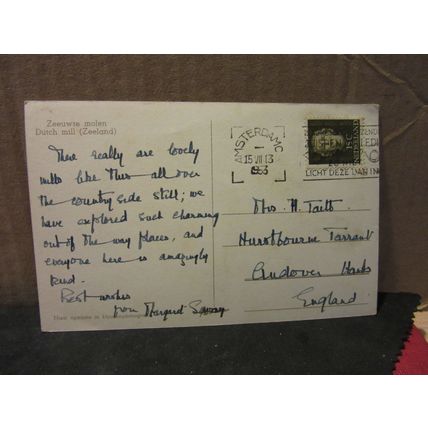 Zeeuwse molen
Dutch mill (Zeeland)
There really are lovely
mills like this all over
the country side still; we
have explored such charming
out of the way places, and
everyone here is amazingly
kind.
Best wishes
from Margaret
AMSTERDAM C
15 VII 13
1953
LICHT DEZE
Mrs. H. Taitt
Hurstbourne Tarrant
Andover Hants
England